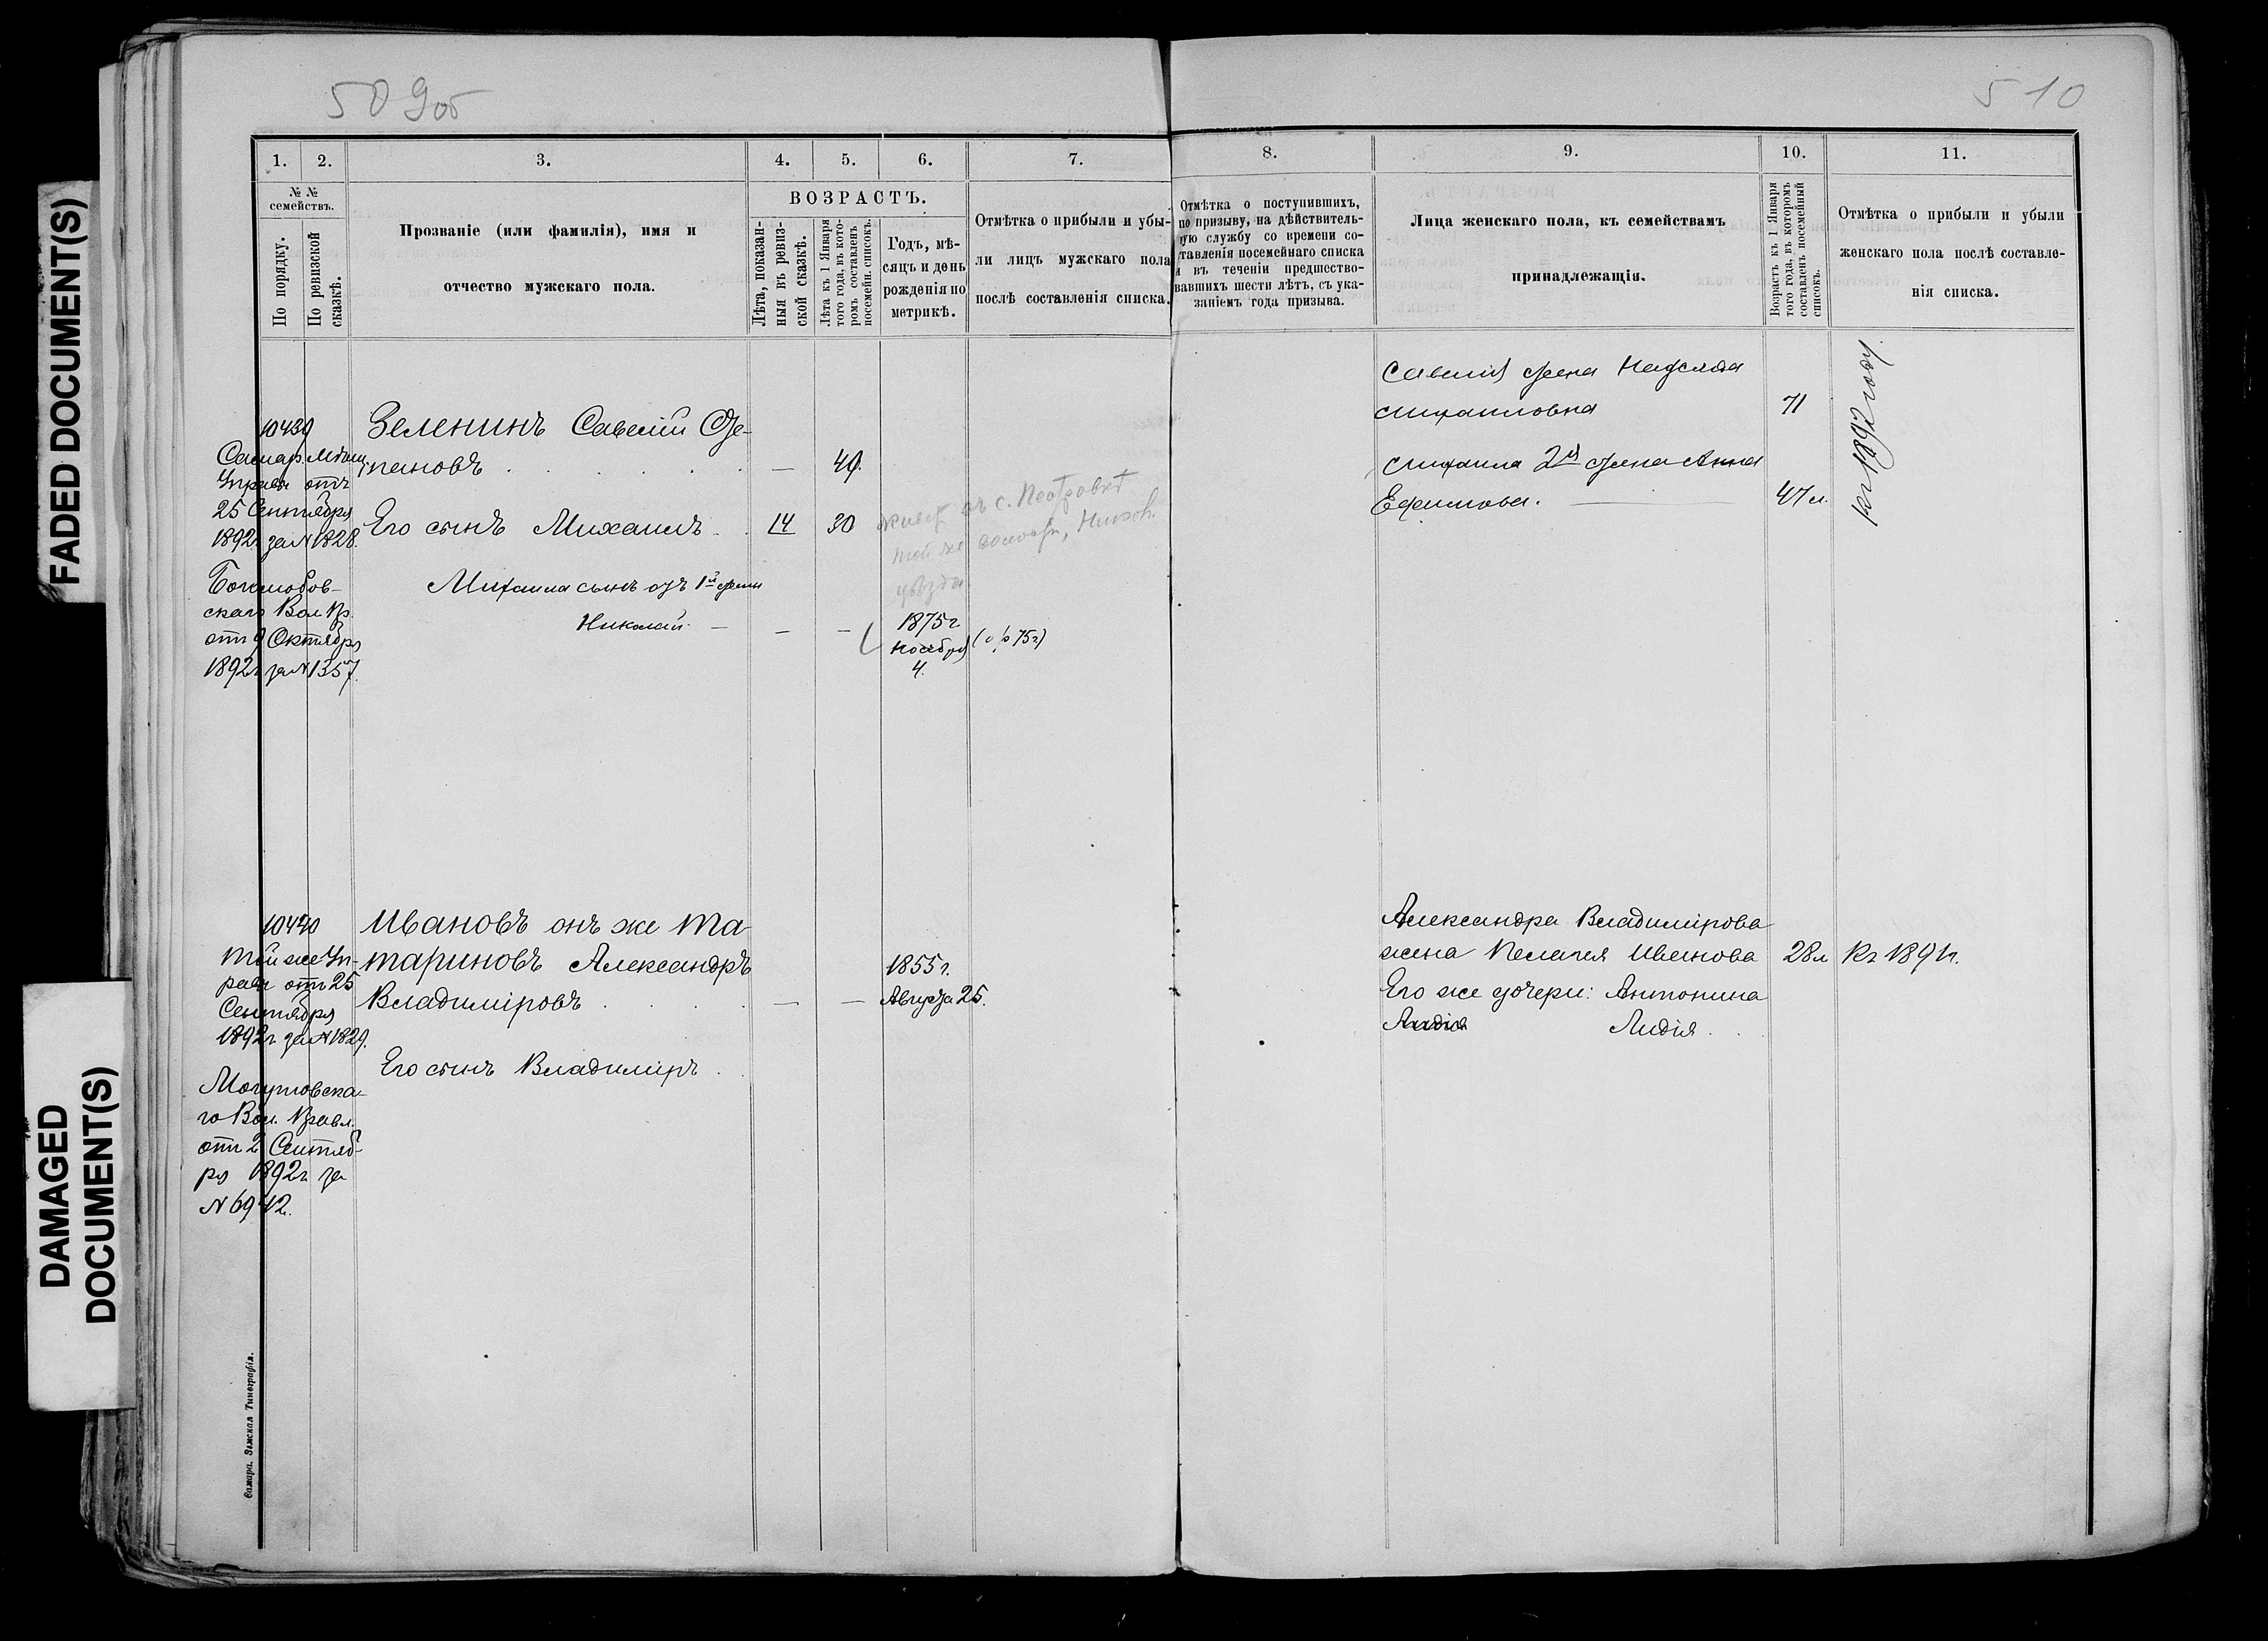 FADED DOCUMENT(S)
DAMAGED
DOCUMENT(S)
509об
510
1.
2.
3.
4.
5.
6.
7.
8.
9.
10.
11.
№ №
семействъ.
По порядку.
По ревизской
сказкѣ.
Прозваніе (или фамилія), имя и
отчество мужскаго пола.
ВОЗРАСТЪ.
Лѣта, показан-
ныя въ ревиз-
ской сказкѣ.
Лѣта къ 1 Января
того года, въ кото-
ромъ составленъ
посемейн. списокъ.
Годъ, мѣ-
сяцъ и день
рожденія по
метрикѣ.
Отмѣтка о прибыли и убы-
ли лицъ мужскаго пола
послѣ составленія списка.
Отмѣтка о поступившихъ,
по призыву, на дѣйствитель-
ную службу со времени со-
ставленія посемейнаго списка
и въ теченіи предшество-
вавшихъ шести лѣтъ, съ ука-
заніемъ года призыва.
Лица женскаго пола, къ семействамъ
принадлежащія.
Возрастъ къ 1 Января
того года, въ которомъ
составленъ посемейный
списокъ.
Отмѣтка о прибыли и убыли
женскаго пола послѣ составле-
нія списка.
10439
Самар. Мѣщ.
Управы отъ
25 Сентября
1892г за N 1828.
Боголюбов-
скаго Вол Пр.
отъ 9 Октября
1892г за N 1357.
Зеленинъ Савелій Сте-
пановъ — 49.
Его сынъ Михаилъ 14 30
живет въ с. Пестровкѣ
той же волости,
уѣзда
Михаила сынъ отъ 1й жены
Николай — — — 1875г
Ноября (о/о 75г)
4.
Савелія жена Надежда
Михаиловна 71
Михаила 2я жена Анна
Ефимова. 47 л.
Къ 1892 году
10440
Той же Уп-
равы отъ 25
Сентября
1892г за N 1829.
Могутовска-
го Вол. Правл.
отъ 2 Сентяб-
ря 1892г за
N 6942.
Ивановъ онъ же Та-
тариновъ Александръ
Владиміровъ — —
1855г.
Августа 25.
Его сынъ Владиміръ
Александра Владимірова
жена Пелагея Иванова 28л Къ 1891г.
Его же дочери: Антонина
Лидія Лидія
Самара. Земская Типографія.